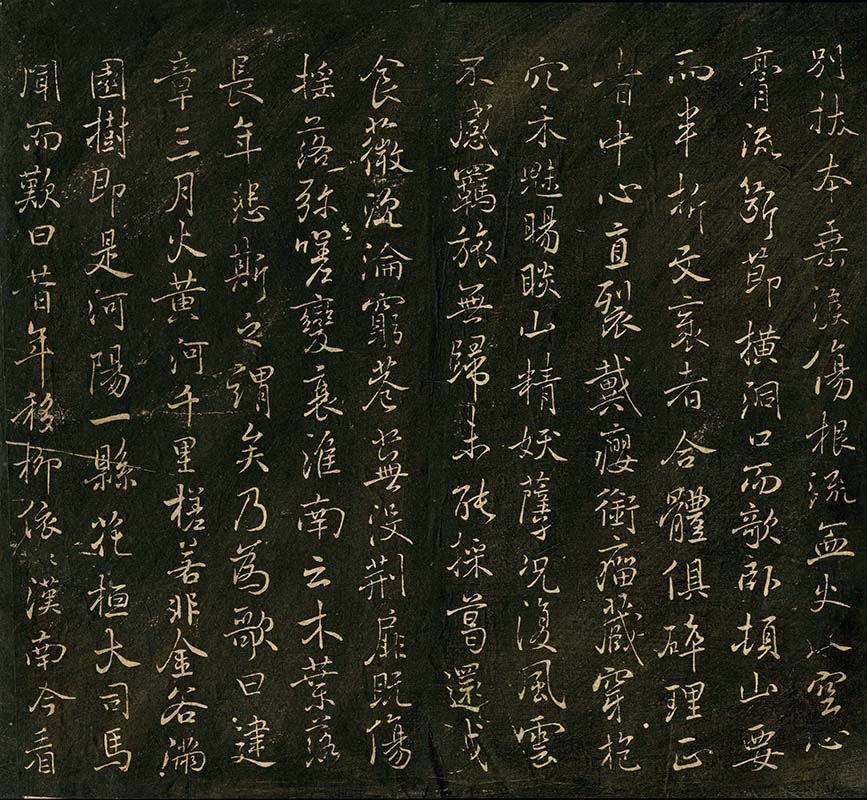 別拔本垂淚傷根流血火入空心
膏流斷節橫洞口而欹臥頓山要
而半折文衺者合體俱碎理正
者中心直裂戴癭銜瘤藏穿抱
穴木魅睗睒山精妖孽况復風雲
不感羈旅無歸未能採葛還成
食薇沉淪窮巷蕪没荊扉既傷
搖落弥嗟變衰淮南云木葉落
長年悲斯之謂矣乃為歌曰建
章三月火黃河千里槎若非金谷滿
園樹即是河陽一縣花桓大司馬
聞而歎曰昔年移柳依〻漢南今看